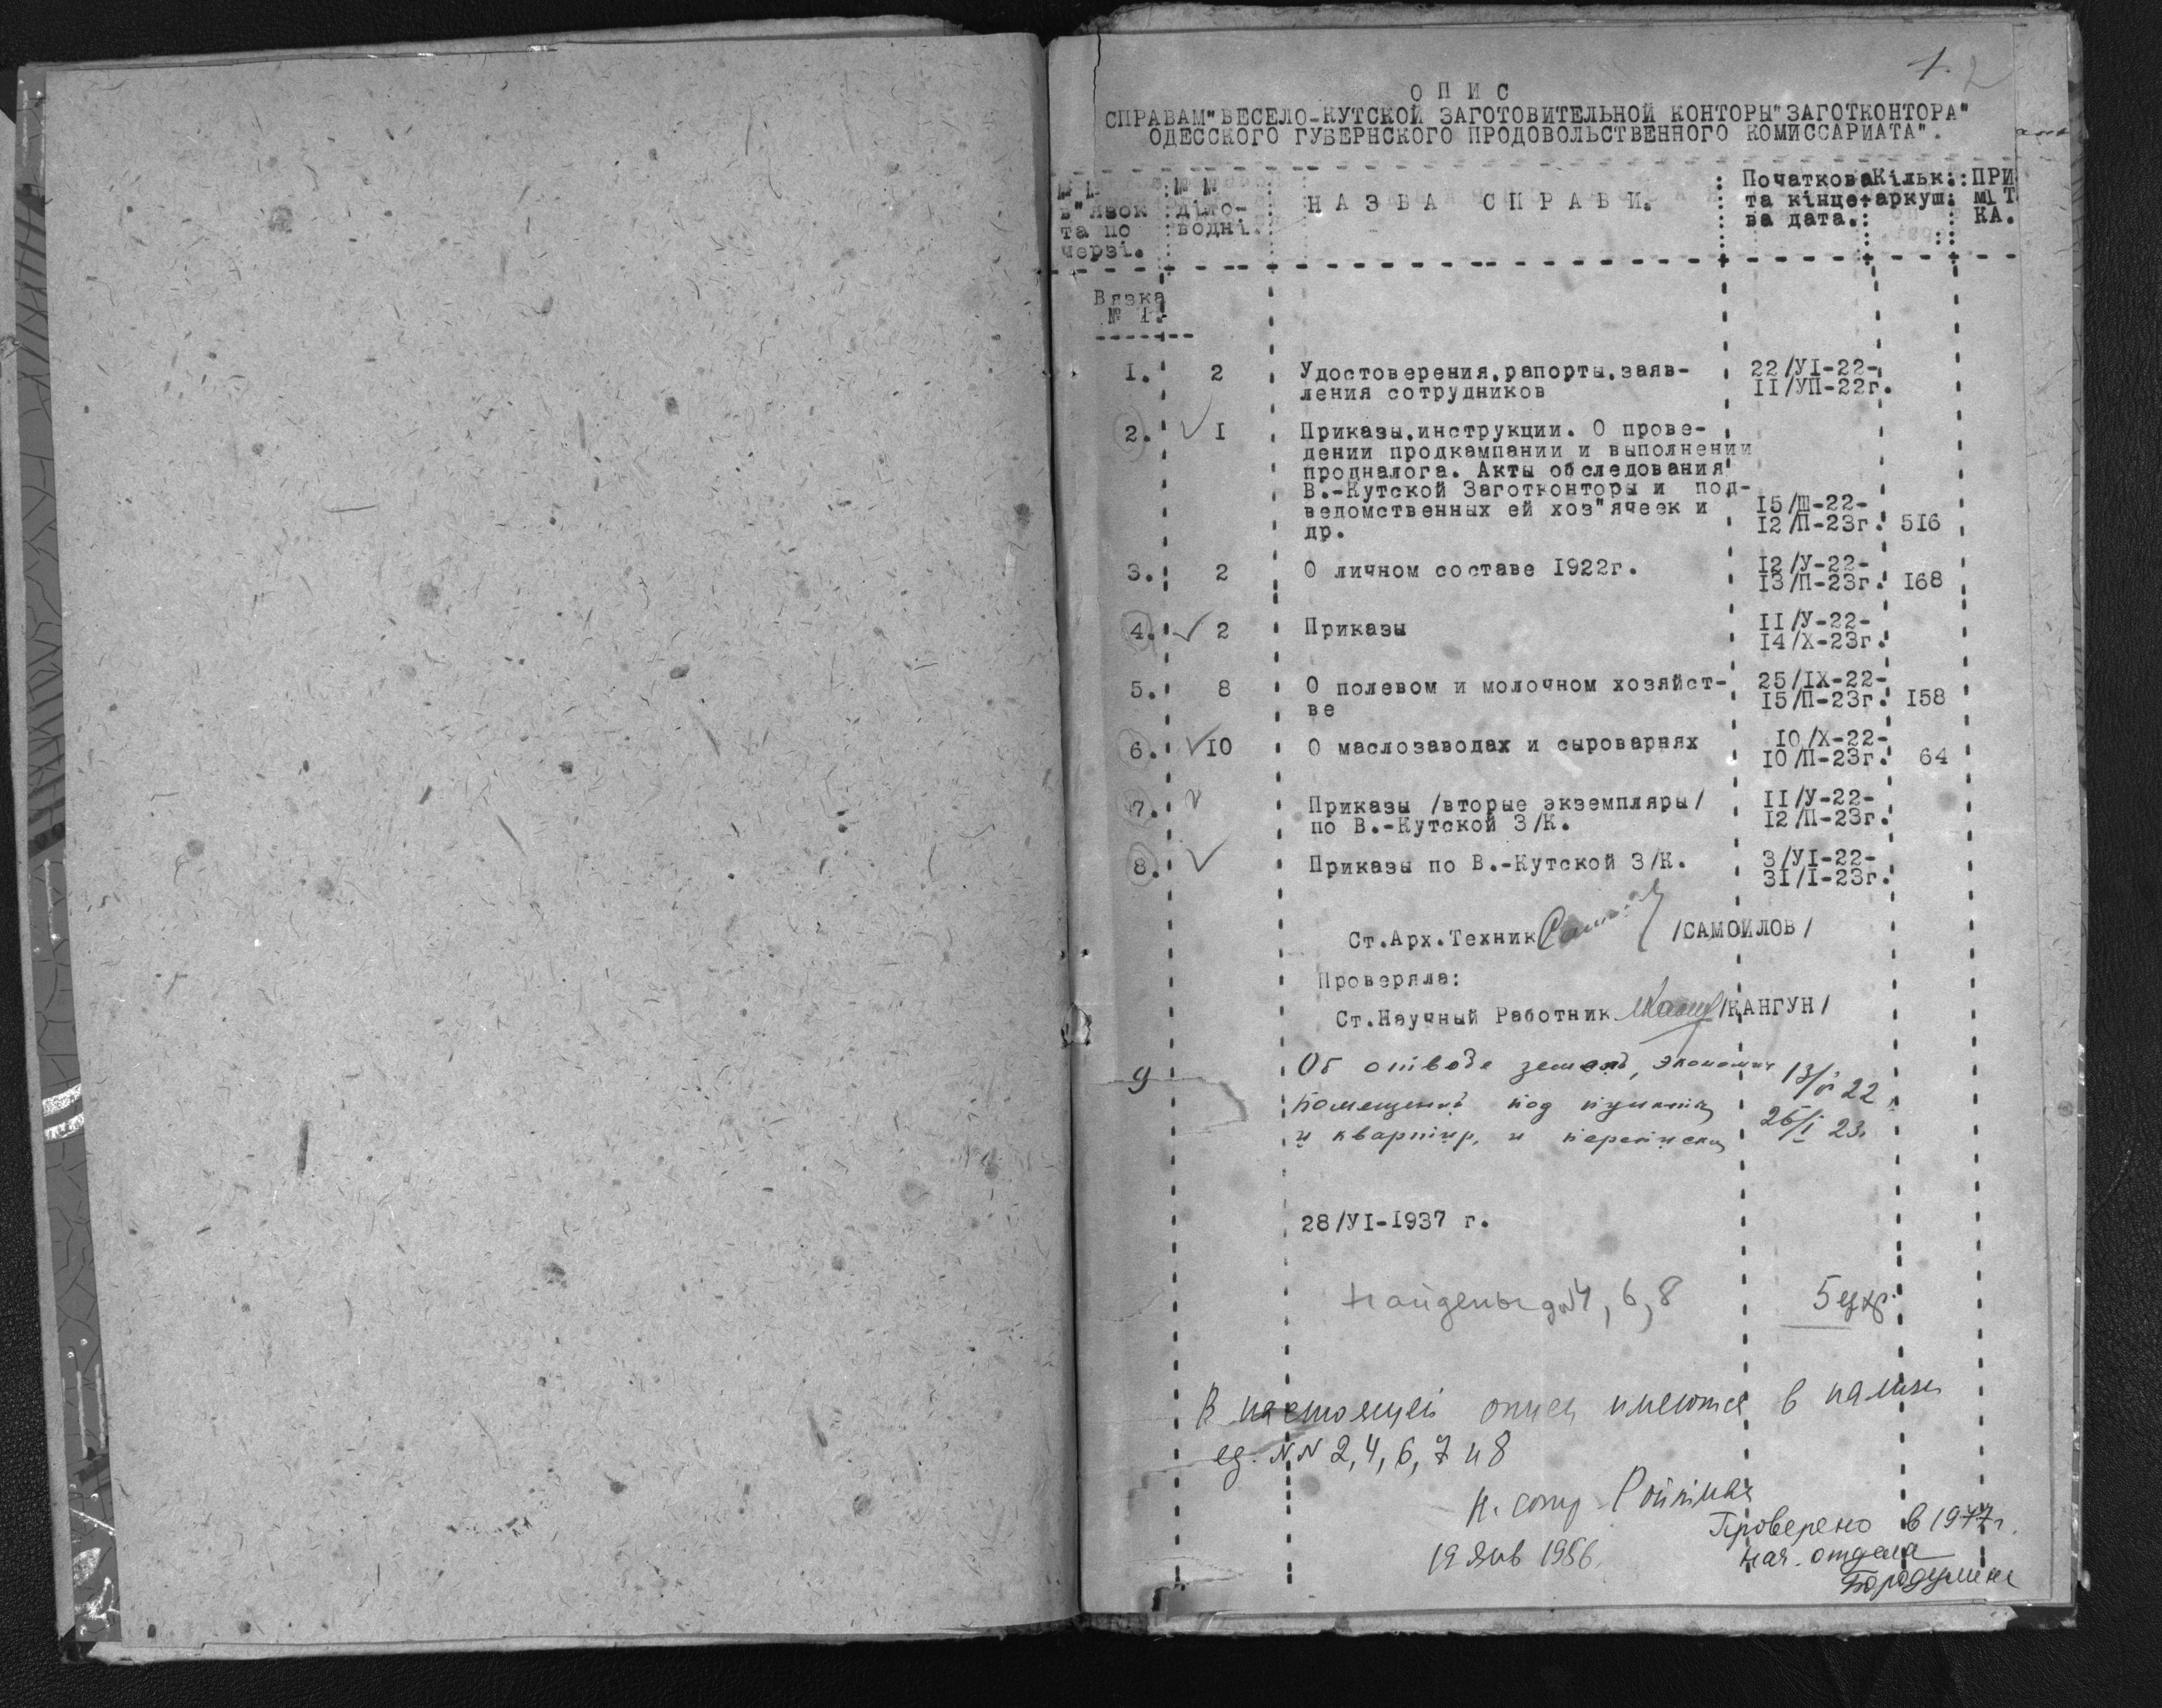 1. 2
О П И С
СПРАВАМ"ВЕСЕЛО-КУТСКОЙ ЗАГОТОВИТЕЛЬНОЙ КОНТОРЫ"ЗАГОТКОНТОРА"
ОДЕССКОГО ГУБЕРНСКОГО ПРОДОВОЛЬСТВЕННОГО КОМИССАРИАТА".
№ №
в"язок
та по
черзі.
№ №
діло-
водні.
НАЗВА СПРАВИ.
Початкова
та кінце-
ва дата.
Кільк.
аркуш.
ПРИ
МІТ
КА.
Вязка
№ 1.
I. 2 Удостоверения,рапорты,заяв- 22/УІ-22-
ления сотрудников II/УП-22г.
2. I Приказы,инструкции. О прове-
дении продкампании и выполнении
продналога. Акты обследования
В.-Кутской Заготконторы и под-
ведомственных ей хоз"ячеек и 15/Ш-22-
др. 12/П-23г. 516
3. 2 О личном составе 1922г. 12/У-22-
13/П-23г. 168
4. 2 Приказы II/У-22-
14/Х-23г.
5. 8 О полевом и молочном хозяйст- 25/ІХ-22-
ве 15/П-23г. 158
6. 10 О маслозаводах и сыроварнях 10/Х-22-
10/П-23г. 64
7. Приказы /вторые экземпляры/ II/У-22-
по В.-Кутской З/К. 12/П-23г.
8. Приказы по В.-Кутской З/К. 3/УІ-22-
31/І-23г.
Ст.Арх.Техник /САМОИЛОВ/
Проверяла:
Ст.Научный Работник /КАНГУН/
9 Об отводе земель, экономич 13/V 22
помещений под пункты
и квартир, и переписка 26/I 23.
28/УІ-1937 г.
Найдены д.№4, 6, 8 5 ед.хр.
В настоящей описи имеются в налич
ед. NN 2, 4, 6, 7 и 8
Н. сотр. Ройтман
19 янв 1956.
Проверено в 1977г.
нач. отдела